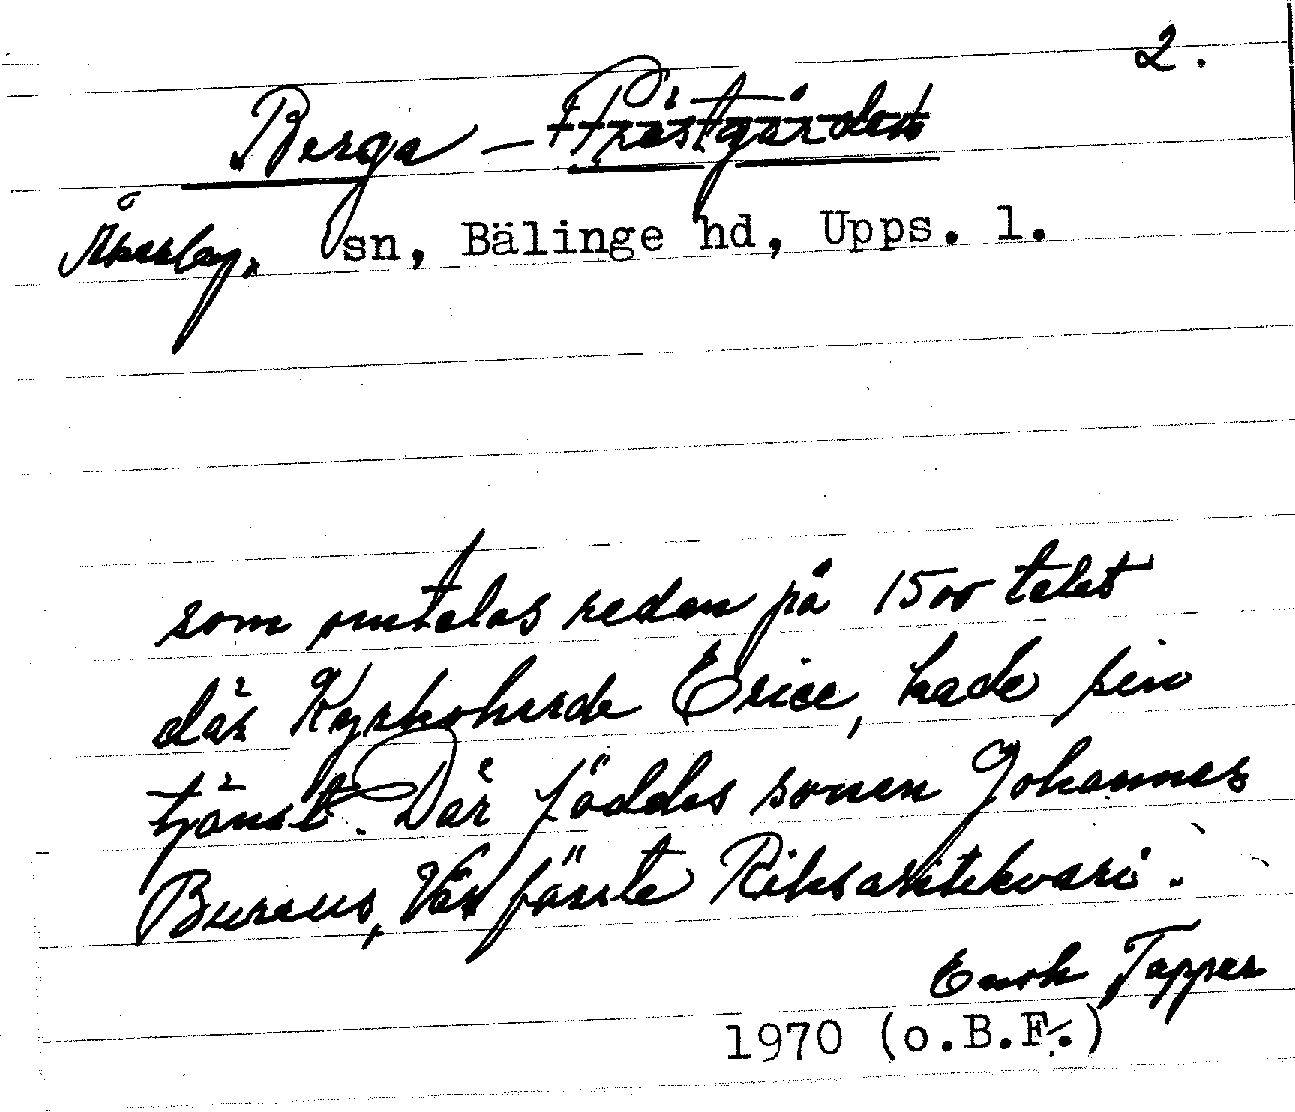 2.
Berga - Prästgården
Åkerby. sn, Bälinge hd, Upps. l.
som omtalas redan på 1500 talet
där Kyrkoherde Erice, hade sin
tjänst. Där föddes sonen Johannes
Bureus, Vår förste Riksantikvari.
Enok Tapper
1970 (o.B.F.)